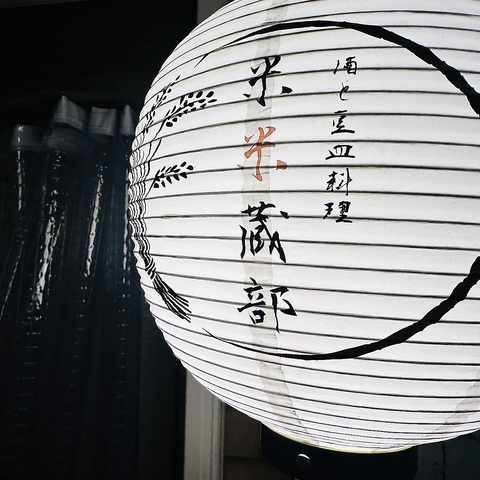 酒と豆皿料理
米米蔵部